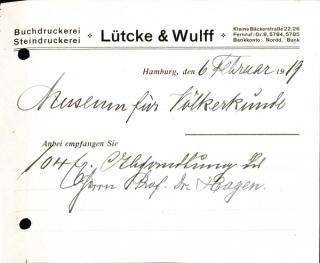 Buchdruckerei
Steindruckerei
Lütcke & Wulff
Kleine Bäckerstraße 22/26
Fernruf: Gr. 8, 5784, 5785
Bankkonto: Nordd. Bank
Hamburg, den 6 Februar 1919
Museum für Völkerkunde
Anbei empfangen Sie
104 Abhandlung
Herrn Prof. Dr. Hagen.